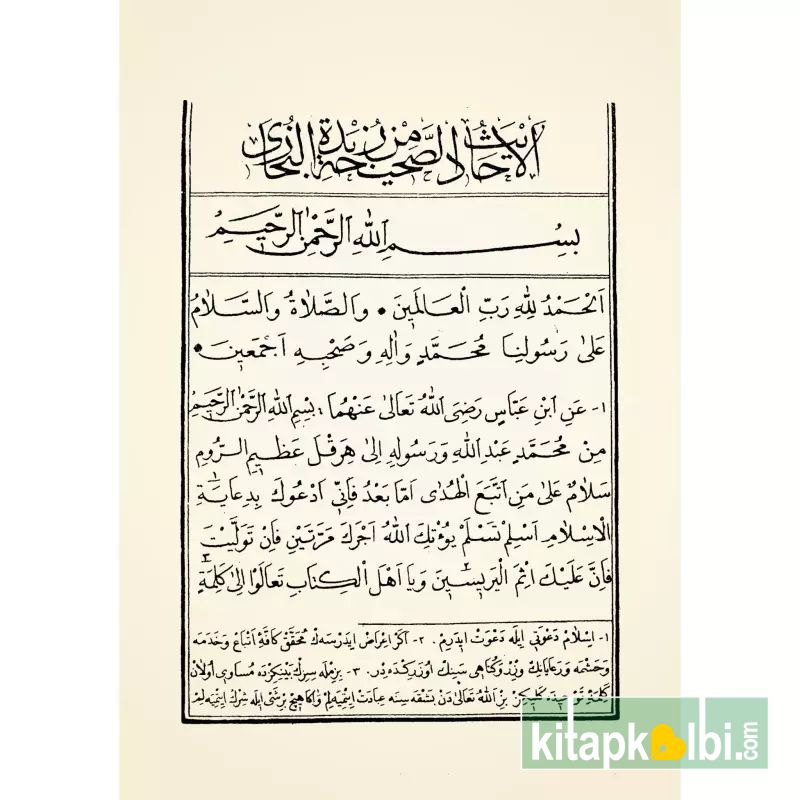 الاحاديث الصحيحة من زبدة البخارى
بسم الله الرحمن الرحيم
اَلْحَمْدُ لِلّٰهِ رَبِّ الْعَالَمِينَ • وَالصَّلَاةُ وَالسَّلَامُ
عَلَى رَسُولِنَا مُحَمَّدٍ وَاٰلِهِ وَصَحْبِهِ اَجْمَعِينَ •
١- عَنِ ابْنِ عَبَّاسٍ رَضِىَ اللّٰهُ تَعَالَى عَنْهُمَا : بِسْمِ اللّٰهِ الرَّحْمٰنِ الرَّحِيمِ
مِنْ مُحَمَّدٍ عَبْدِ اللّٰهِ وَرَسُولِهِ اِلَى هِرَقْلَ عَظِيمِ الرُّومِ
سَلَامٌ عَلَى مَنِ اتَّبَعَ الْهُدَى اَمَّا بَعْدُ فَاِنِّى اَدْعُوكَ بِدِعَايَةِ
الْاِسْلَامِ اَسْلِمْ تَسْلَمْ يُؤْتِكَ اللّٰهُ اَجْرَكَ مَرَّتَيْنِ فَاِنْ تَوَلَّيْتَ
فَاِنَّ عَلَيْكَ اِثْمَ الْيَرِيسِينَ وَيَا اَهْلَ الْكِتَابِ تَعَالَوْا اِلَى كَلِمَةٍ
١- اسلام دعوتى ايله دعوت ايدرم. ٢- اكر اعراض ايدرسه ك محقق كافة اتباع و خدمه
وحشمه ورعايانك وزر وكناهى سنك اوزركده در. ٣- بزمله سزك بينكزده مساوى اولان
كلمة توحيده كليكز بز الله تعالى دن بشقه سنه عبادت ايتميه لم واكا هيچ بر شئى ايله شرك ايتميه لم
kitapkalbi.com